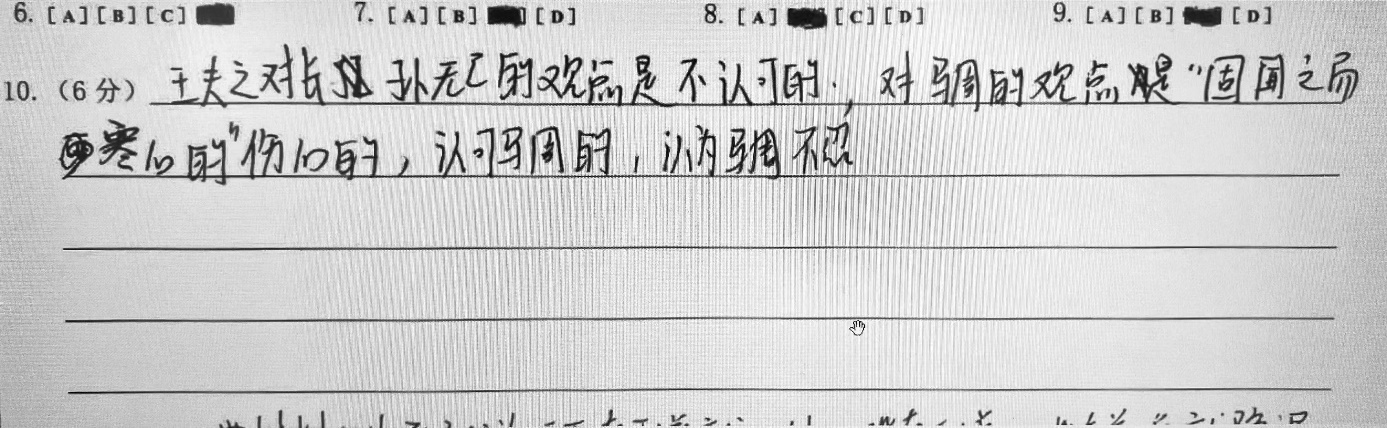 6. [A] [B] [C] 7. [A] [B] [D] 8. [A] [C] [D] 9. [A] [B] [D]
10. (6分) 王夫之对长孙无忌的观点是不认可的, 对马周的观点是“固闻之而
寒心的”伤心的, 认可马周的, 认为马周不忍